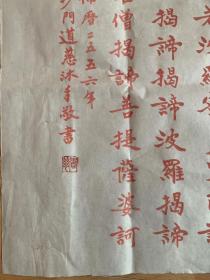 若波羅
揭諦揭諦波羅揭諦
僧揭諦菩提薩婆訶
佛曆二五五六年
門道慈沐手敬書